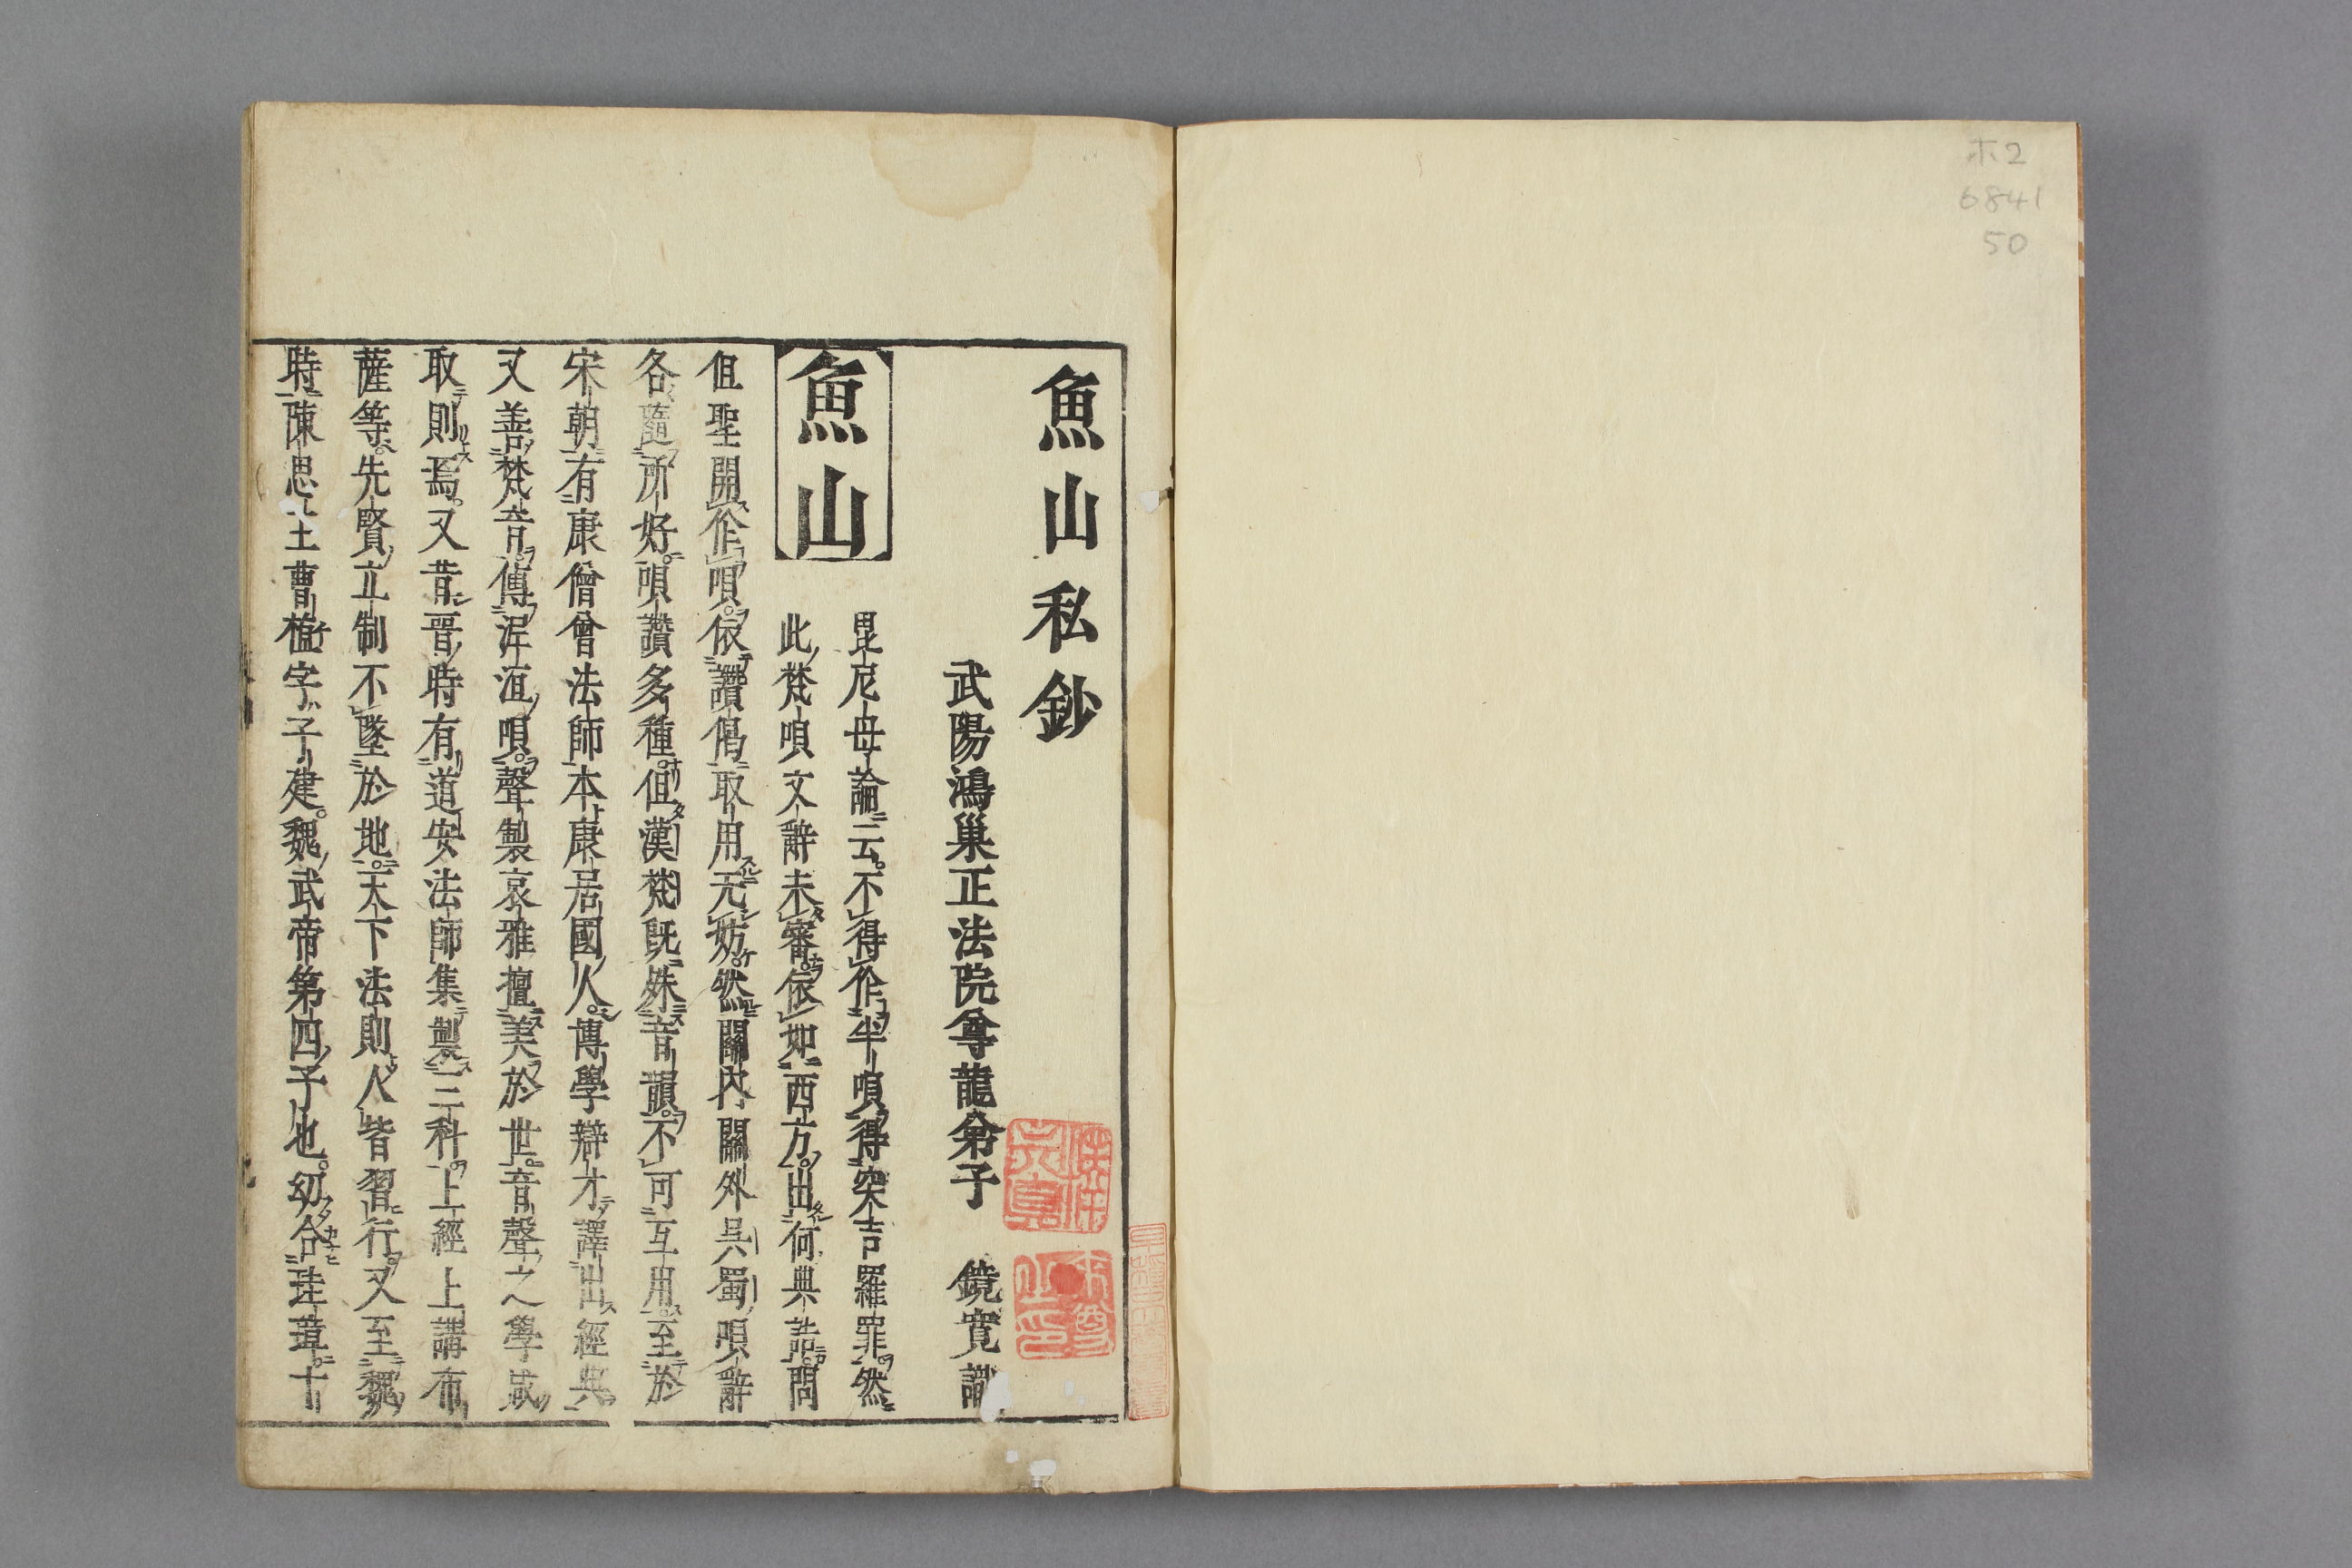 ホ2
6841
50
魚山私鈔
武陽鴻巢正法院尊龍弟子 鏡寬識
魚山
毘尼母論云不得作半唄得突吉羅罪然
此梵唄文辭未審依如西方出何典誥問
但聖開作唄依讚偈取用无妨然關内關外吳蜀唄辭
各隨所好唄讚多種但漢梵既殊音韻不可互用至於
宋朝有康僧曾法師本康居國人博學辯才譯出經典
又善梵音傳泥洹唄聲製哀雅擅美於世音聲之學咸
取則焉又昔晉時有道安法師集製三科上經上講布
薩等先賢立制不墜於地天下法則人皆習行又至魏
時陳思王曹植字子建魏武帝第四子也幼含珪璋十